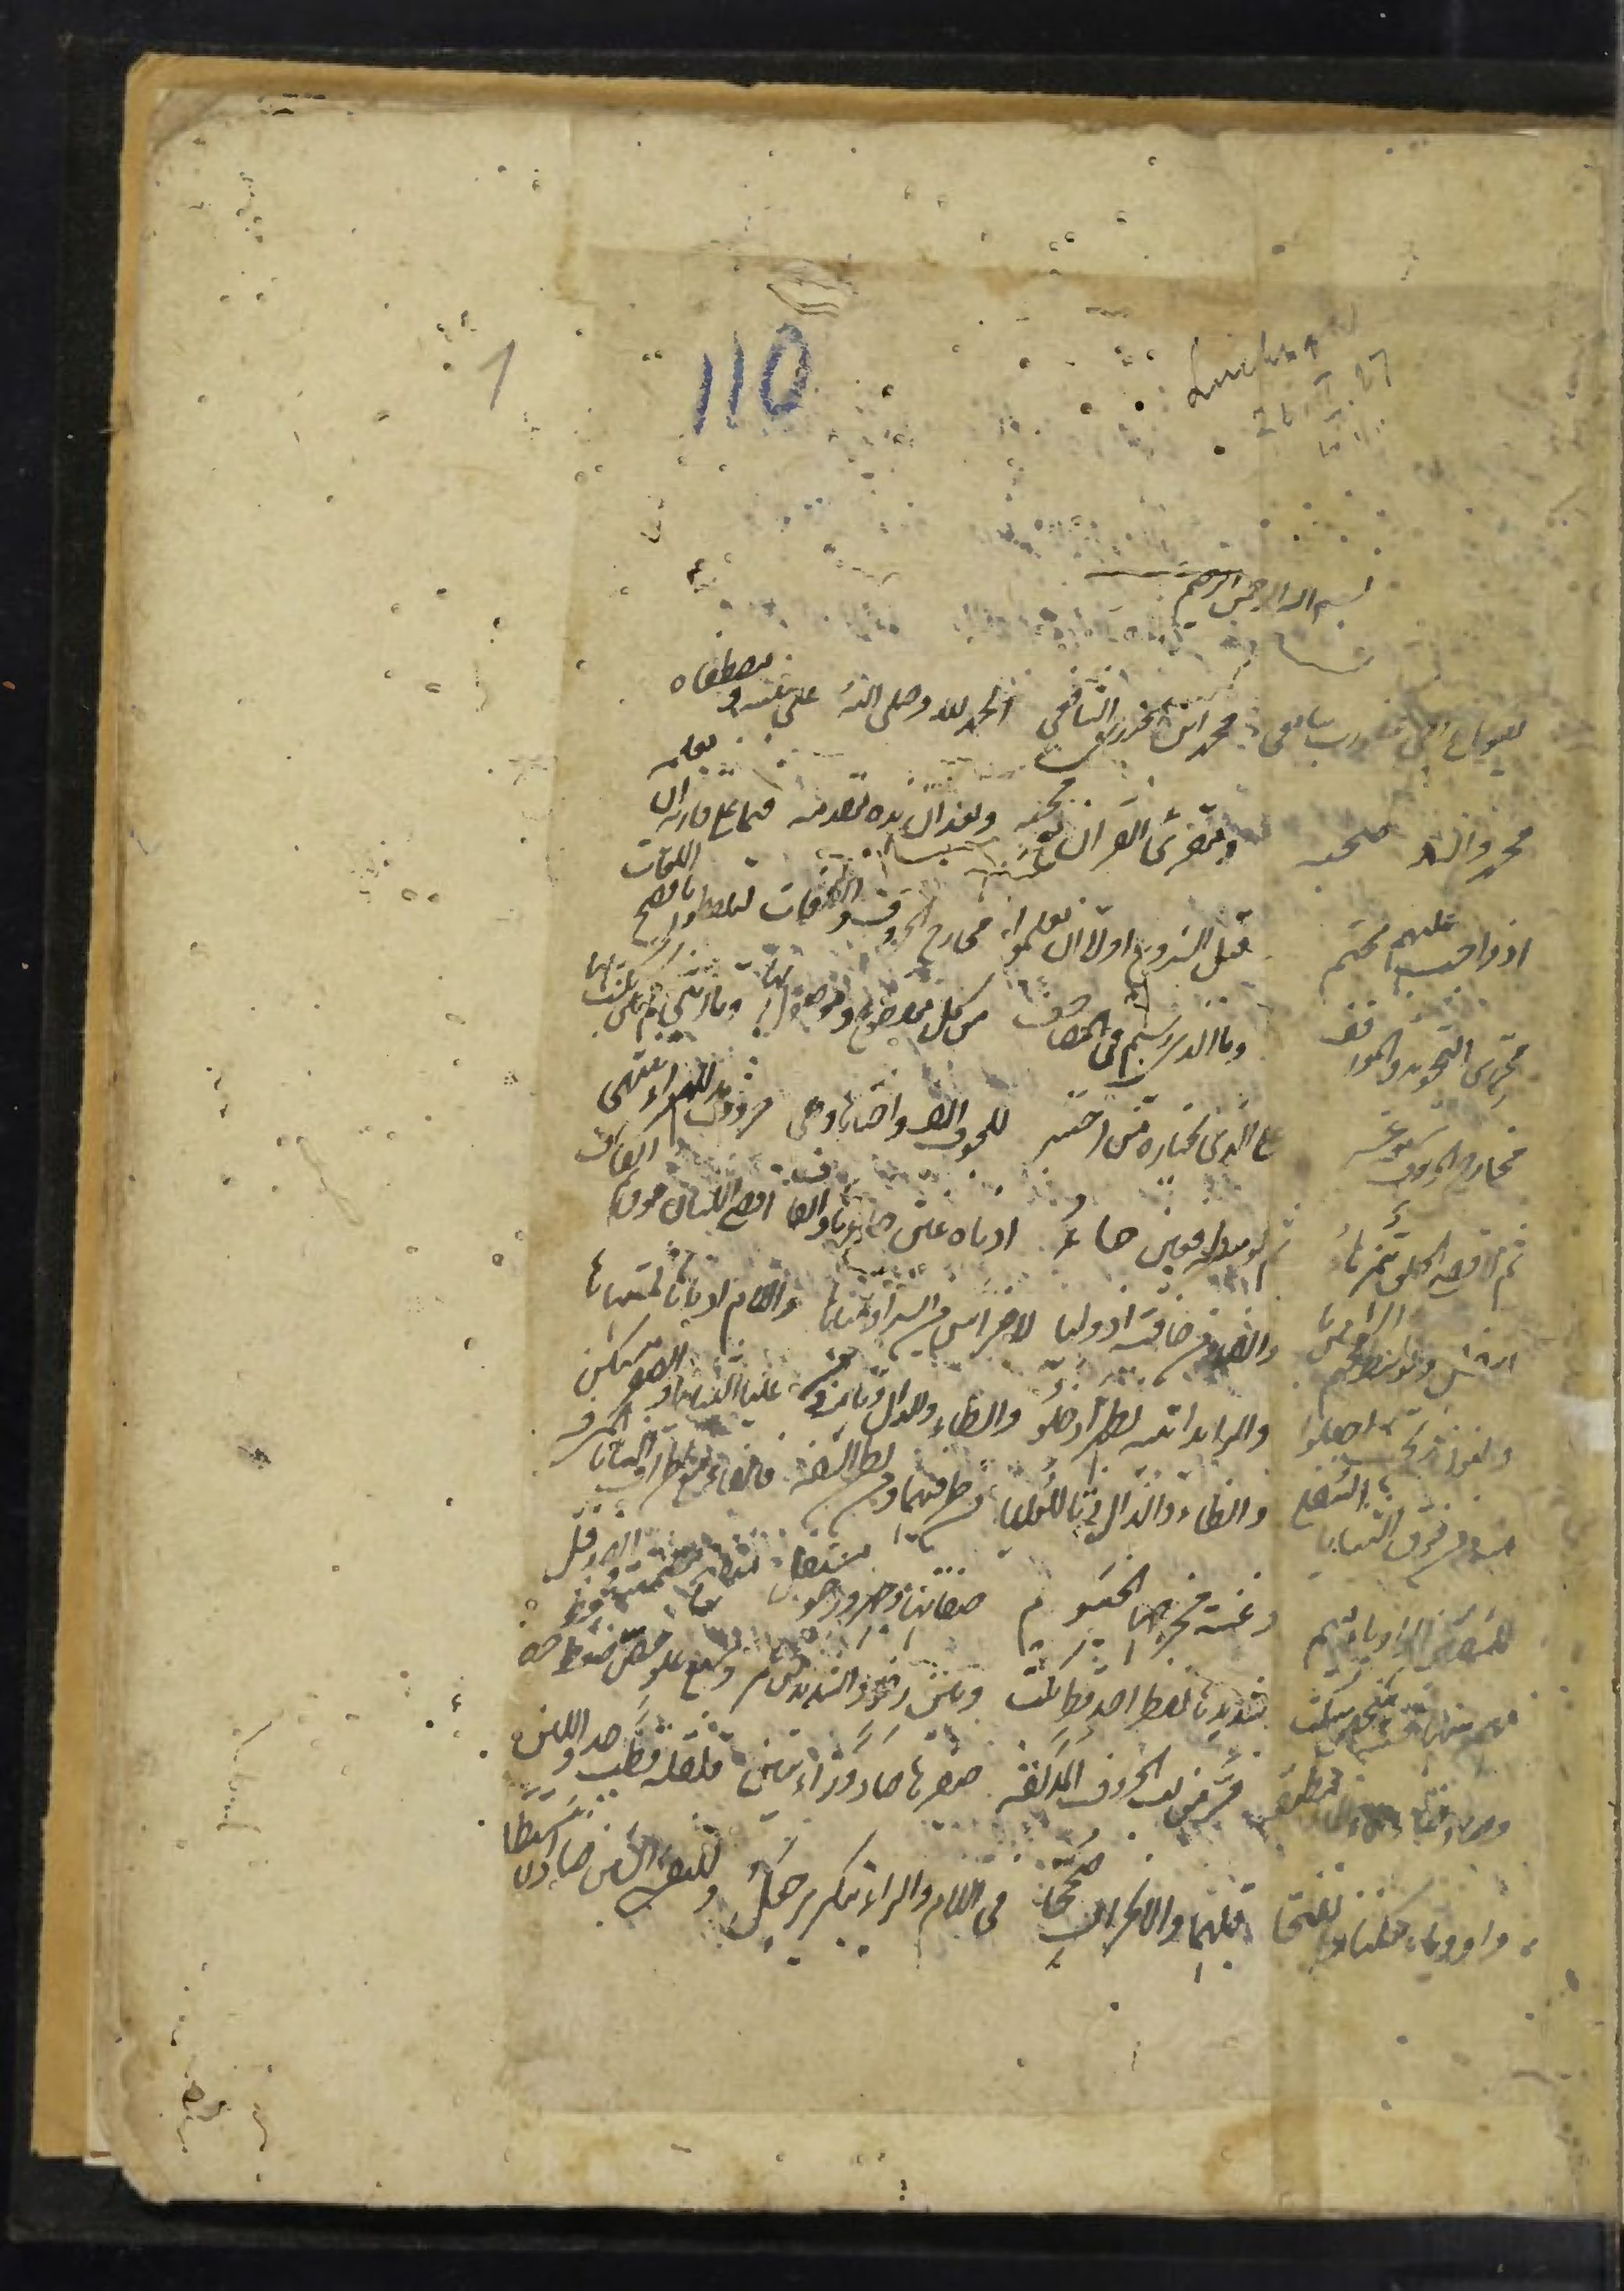 1
110
Lucknow
بسم الله الرحمن الرحيم
يقول راجى عفو رب سامع محمد ابن الجزرى الشافعى الحمد لله وصلى الله على نبيه و مصطفاه
محمد واله وصحبه ومقرئ القران مع محبه وبعد ان هذه مقدمه فيما على قارئه ان يعلمه
اذ واجب عليهم محتم قبل الشروع اولا ان يعلموا مخارج الحروف والصفات ليلفظوا بافصح اللغات
محررى التجويد والمواقف وما الذى رسم فى المصاحف من كل مقطوع وموصول بها وتا انثى لم تكن تكتب بها
مخارج الحروف سبعة عشر على الذى يختاره من اختبر للجوف الف واختاها وهى حروف مد للهواء تنتهى
ثم لاقصى الحلق همز هاء ثم لوسطه فعين حاء ادناه غين خاؤها والقاف اقصى اللسان فوق ثم الكاف
اسفل والوسط فجيم الشين يا والضاد من حافته اذ وليا لاضراس من ايسر او يمناها واللام ادناها لمنتهاها
والنون من طرفه تحت اجعلوا والرا يدانيه لظهر ادخلوا والطاء والدال وتا منه ومن عليا الثنايا والصفير مستكن
منه ومن فوق الثنايا السفلى والظاء والذال وثا للعليا من طرفيهما ومن بطن الشفه فالفاء مع اطراف الثنايا المشرفه
للشفتين الواو باء ميم وغنة مخرجها الخيشوم صفاتها جهر ورخو مستفل منفتح مصمتة والضد قل
مهموسها فحثه شخص سكت شديدها لفظ اجد قط بكت وبين رخو والشديد لن عمر وسبع علو خص ضغط
وصاد ضاد طاء ظاء مطبقه وفر من لب الحروف المذلقه صفيرها صاد وزاء سين قلقله قطب جد واللين
واو وياء سكنا وانفتحا قبلهما والانحراف صححا فى اللام والراء وبتكرير جعل وللتفشى الشين ضادا استطل